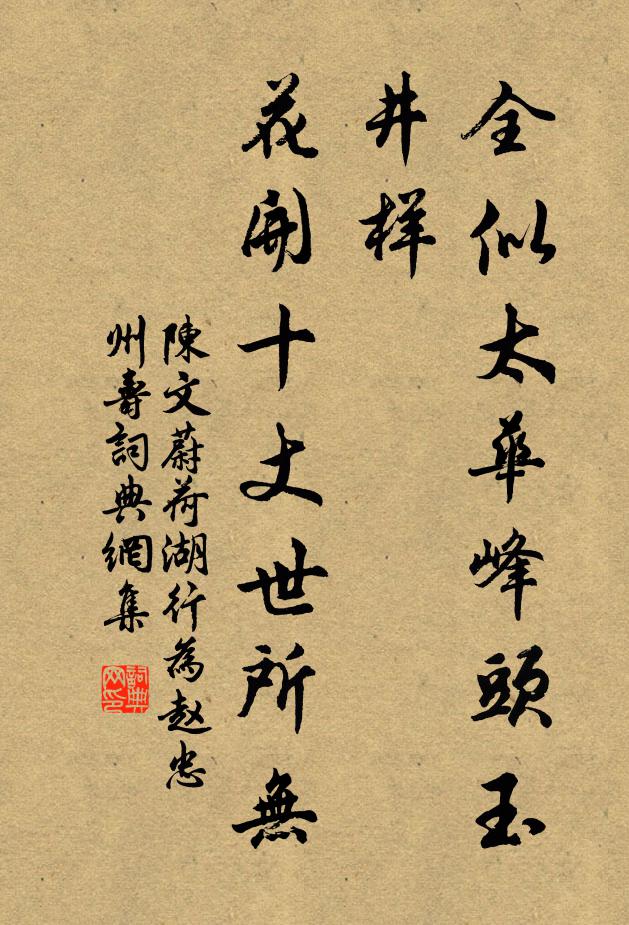 全似太華峰頭玉
井样
花開十丈世所無
陳文蔚荷湖行為赵忠
州壽詞典網集
詞典网印